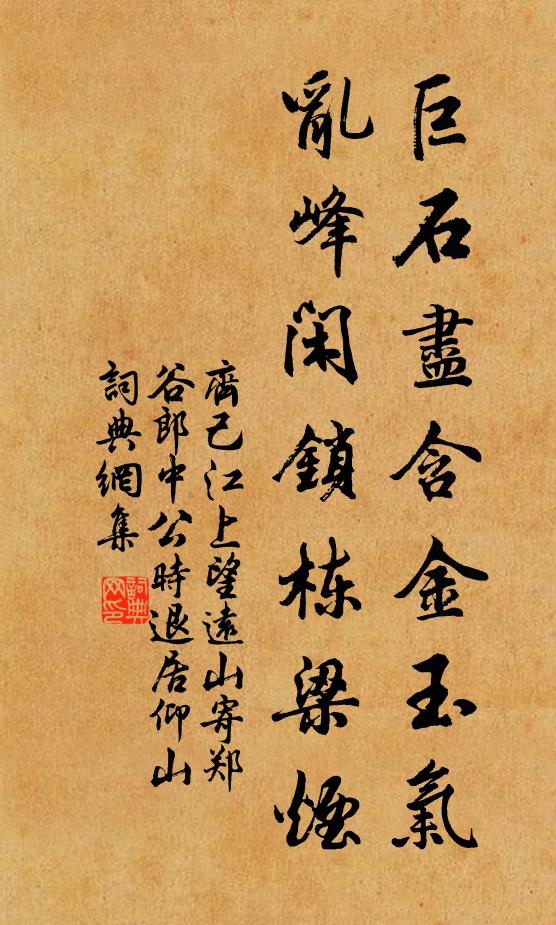 巨石盡含金玉氣
亂峰閑鎖栋梁煙
齊己江上望遠山寄郑
谷郎中公時退居仰山
詞典網集
詞典
网印